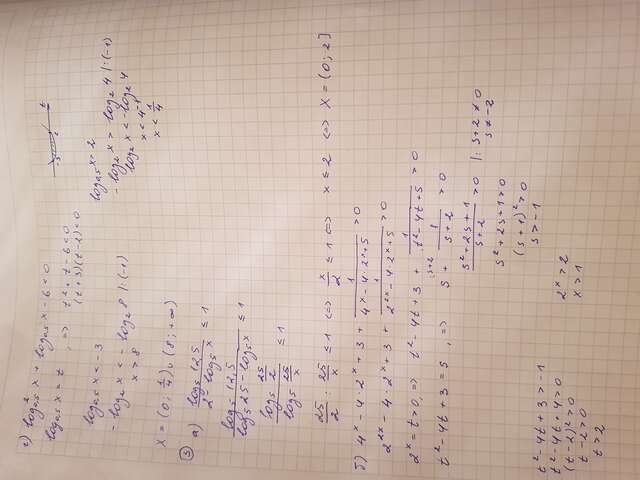 г) log²₀,₅ x + log₀,₅ x - 6 < 0
log₀,₅ x = t , => t² + t - 6 < 0
(t+3)(t-2) < 0
-3 2 t
log₀,₅ x < -3
-log₂ x < -log₂ 8 |:(-1)
x > 8
log₀,₅ x > 2
-log₂ x > log₂ 4 |:(-1)
log₂ x < -log₂ 4
x < 4⁻¹
x < 1/4
X = (0; 1/4) ∪ (8; +∞)
③ а) log₅ 12,5 / (2 - log₅ x) ≤ 1
log₅ 12,5 / (log₅ 25 - log₅ x) ≤ 1
log₅ 25/2 / log₅ 25/x ≤ 1
25/2 : 25/x ≤ 1 <=> x/2 ≤ 1 <=> x ≤ 2 <=> X = (0; 2]
б) 4ˣ - 4·2ˣ + 3 + 1/(4ˣ - 4·2ˣ + 5) > 0
2²ˣ - 4·2ˣ + 3 + 1/(2²ˣ - 4·2ˣ + 5) > 0
2ˣ = t > 0, => t² - 4t + 3 + 1/(t² - 4t + 5) > 0
t² - 4t + 3 = s , => s + 1/(s+2) > 0
(s² + 2s + 1)/(s+2) > 0 |: s+2 ≠ 0
s ≠ -2
s² + 2s + 1 > 0
(s+1)² > 0
s > -1
t² - 4t + 3 > -1
t² - 4t + 4 > 0
(t-2)² > 0
t - 2 > 0
t > 2
2ˣ > 2
x > 1